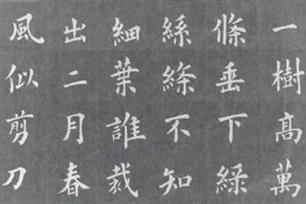 一樹髙萬
條垂下綠
絲絛不知
細葉誰裁
出二月春
風似剪刀